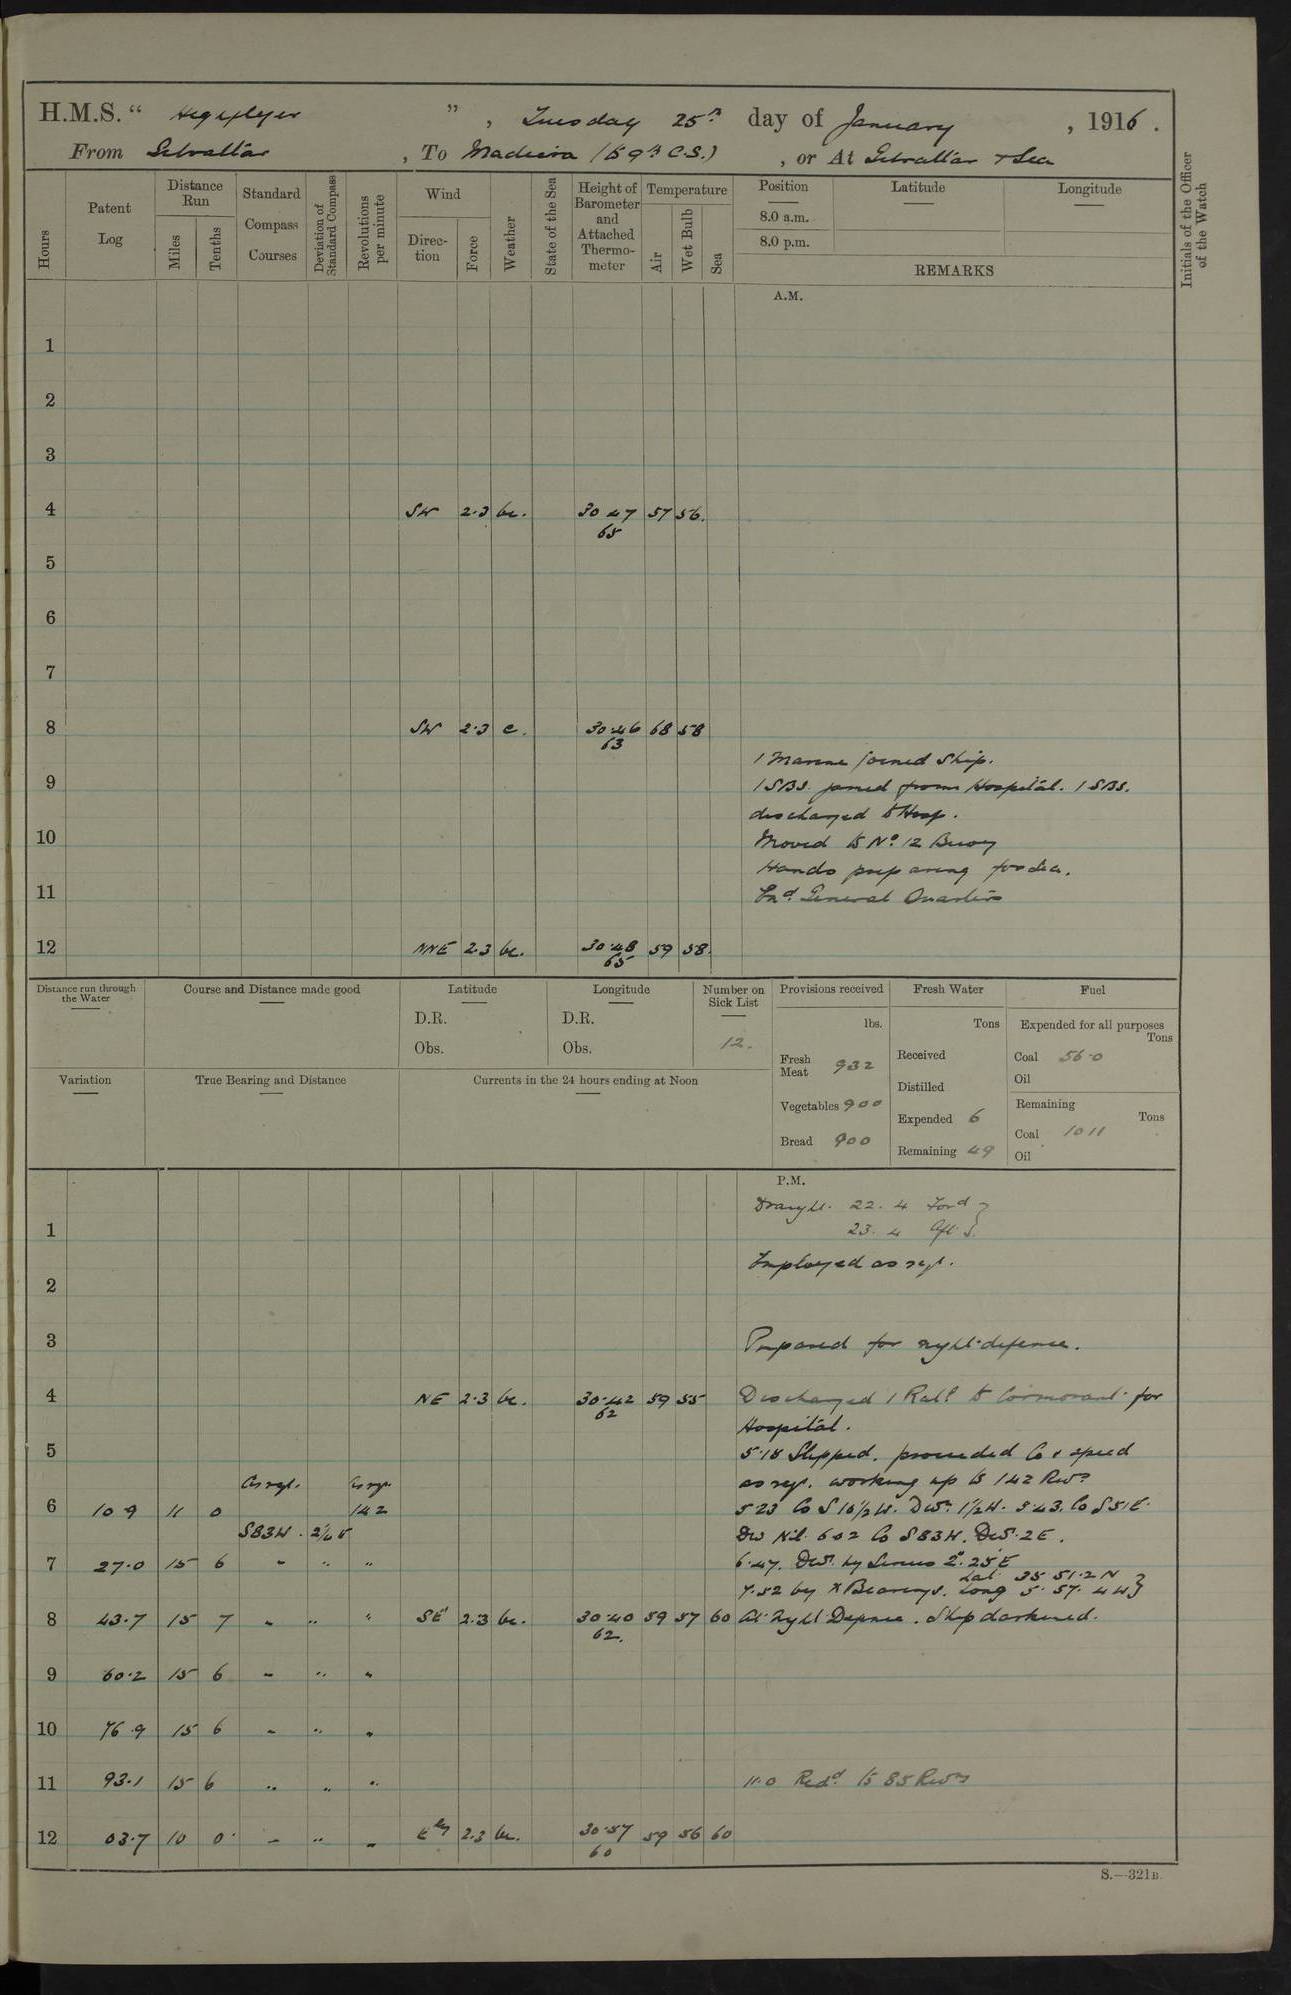 H.M.S. " Highflyer ", Tuesday 25th day of January, 1916.
From Gibraltar, To Madeira (to 9th C.S.), or At Gibraltar & Sea
Hours
Patent Log
Distance Run
Miles
Tenths
Standard Compass Courses
Deviation of Standard Compass
Revolutions per minute
Wind
Direction
Force
Weather
State of the Sea
Height of Barometer and Attached Thermometer
Temperature
Air
Wet Bulb
Sea
Position
8.0 a.m.
8.0 p.m.
Latitude
Longitude
REMARKS
Initials of the Officer of the Watch
A.M.
1
2
3
4 SW 2.3 bc. 30.47 57 56.
65
5
6
7
8 SW 2.3 c. 30.46 68 58
63
1 Marine joined Ship.
9 1 SBS. joined from Hospital. 1 SBS.
discharged to Hosp.
10 Moved to No. 12 Buoy
Hands preparing for Sea.
11 General Quarters
12 NNE 2.3 bc. 30.48 59 58.
65
Distance run through the Water
Course and Distance made good
Latitude
D.R.
Obs.
Longitude
D.R.
Obs.
Number on Sick List
12.
Variation
True Bearing and Distance
Currents in the 24 hours ending at Noon
Provisions received
lbs.
Fresh Meat 932
Vegetables 900
Bread 900
Fresh Water
Tons
Received
Distilled
Expended 6
Remaining 49
Fuel
Expended for all purposes
Tons
Coal 56.0
Oil
Remaining
Tons
Coal 1011
Oil
P.M.
Draught. 22. 4 Ford }
1 23. 4 Aft }
Employed as reqt.
2
3 Prepared for night defence.
4 NE 2.3 bc. 30.42 59 55 Discharged 1 Ratg to Cormorant for
62
Hospital.
5 5.18 Slipped. proceeded Co & speed
as reqt. working up to 142 Revs
As reqt. As reqt.
6 10 9 11 0 142 5 23 Co S 16 1/2 W. Devn 1 1/2 W. 5 43. Co S 51 E.
S83W. Dev Nil. 6 02 Co S83W. Dev. 2E.
7 27.0 15 6 " " " 6.47. Devn by Sirius 2°.25'E
7.52 by * Bearings. Lat 35 51.2 N Long 5. 57. 4 W }
8 43.7 15 7 " " " SE 2.3 bc. 30.40 59 57 60 At Night Defence. Ship darkened.
62.
9 60.2 15 6 " " "
10 76.9 15 6 " " "
11 93.1 15 6 " " " 11.0 Redd to 85 Revs
12 03.7 10 0 " " " Ely 2.3 bc. 30.57 59 56 60
60
S.—321B.